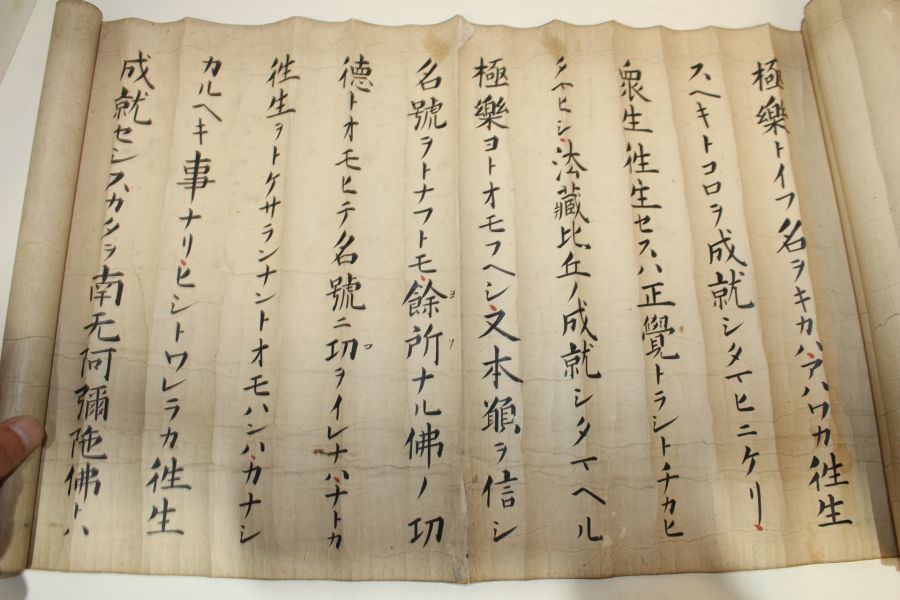 極樂トイフ名ヲキカハアハワカ徃生
スヘキトコロヲ成就シタマヒニケリ
衆生徃生セスハ正覺トラシトチカヒ
タマヒシ法藏比丘ノ成就シタマヘル
極樂ヨトオモフヘシ文本願ヲ信シ
名號ヲトナフトモ餘所ナル佛ノ功
ヨソ
德トオモヒテ名號ニ功ヲイレナハナトカ
コ
徃生ヲトケサランナントオモハンハカナシ
カルヘキ事ナリヒシトワレラカ徃生
成就セシスカタヲ南无阿彌陁佛トハ